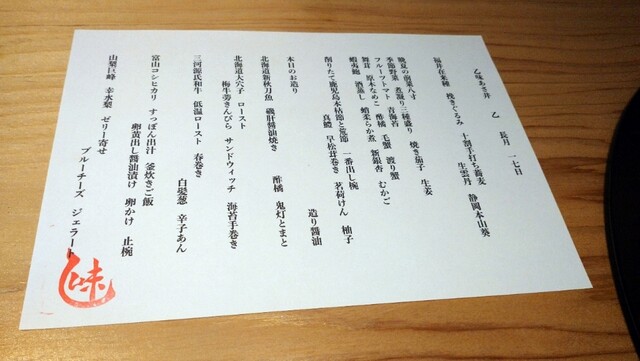 乙味あさ井　乙　長月　一七日
福井在来種　挽きぐるみ　十割手打ち蕎麦
生雲丹　静岡本山葵
晩夏の前菜八寸
季節野菜　煮凝り三種盛り　焼き茄子　生姜
フルーツトマト　青海苔
舞茸　原木なめこ　酢橘　毛蟹　渡り蟹
蝦夷鮑　酒蒸し　蛸柔らか煮　新銀杏　むかご
削りたて鹿児島本枯節と荒節　一番出し椀
真鱧　早松茸巻き　茗荷けん　柚子
本日のお造り
造り醤油
北海道新秋刀魚　磯肝醤油焼き
酢橘　鬼灯とまと
北海道大穴子　ロースト
梅牛蒡きんぴら　サンドウィッチ　海苔手巻き
三河源氏和牛　低温ロースト　春巻き
白髪葱　辛子あん
富山コシヒカリ　すっぽん出汁　釜炊きご飯
卵黄出し醤油漬け　卵かけ　止椀
山梨巨峰　幸水梨　ゼリー寄せ
ブルーチーズ　ジェラート
味